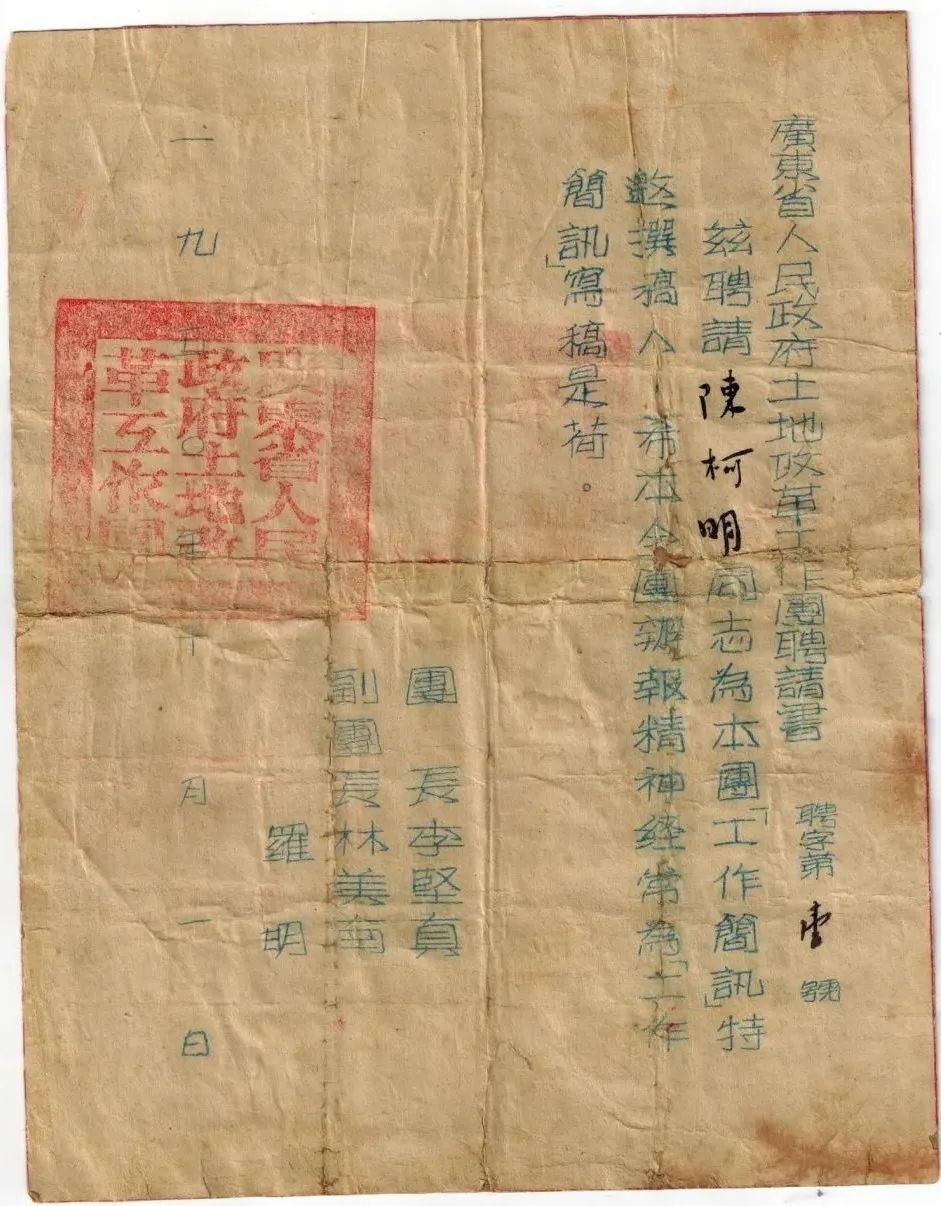 廣東省人民政府土地改革工作團聘請書
聘字第壹號
茲聘請陳柯明同志為本團「工作簡訊」特
邀撰稿人，希本全團辦報精神經常為「工作
簡訊」寫稿是荷。
團長李堅真
副團長林美南
羅明
一九五〇年十月一日
廣東省人民
政府土地改
革工作團